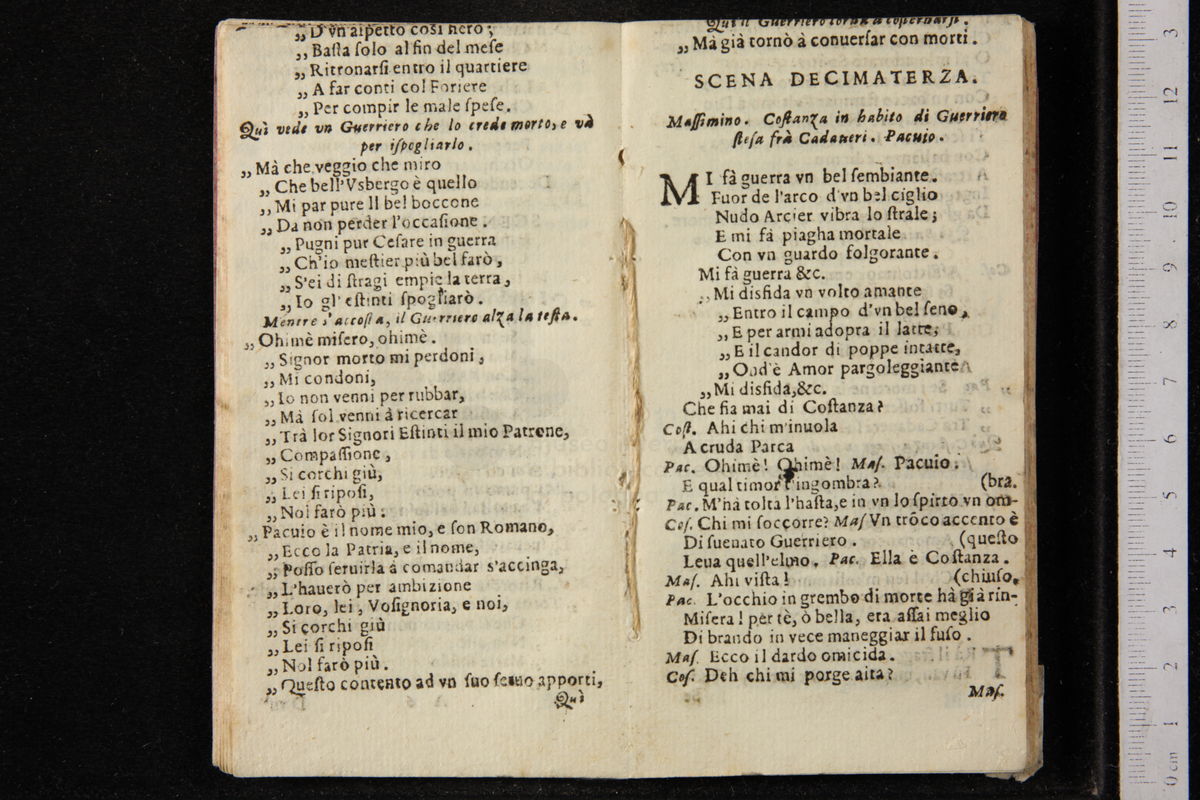 „D'vn aspetto così nero;
„Basta solo al fin del mese
„Ritronarsi entro il quartiere
„A far conti col Foriere
„Per compir le male spese.
Quì vede vn Guerriero che lo crede morto, e và
per ispogliarlo.
„Mà che veggio che miro
„Che bell'Vsbergo è quello
„Mi par pure Il bel boccone
„Da non perder l'occasione.
„Pugni pur Cesare in guerra
„Ch'io mestier più bel farò,
„S'ei di stragi empie la terra,
„Io gl' estinti spogliarò.
Mentre s'accosta, il Guerriero alza la testa.
„Ohimè misero, ohimè.
„Signor morto mi perdoni,
„Mi condoni,
„Io non venni per rubbar,
„Mà sol venni à ricercar
„Trà lor Signori Estinti il mio Patrone,
„Compassione,
„Si corchi giù,
„Lei si riposi,
„Nol farò più.
„Pacuio è il nome mio, e son Romano,
„Ecco la Patria, e il nome,
„Posso seruirla à comandar s'accinga,
„L'hauerò per ambizione
„Loro, lei, Vosignoria, e noi,
„Si corchi giù
„Lei si riposi
„Nol farò più.
„Questo contento ad vn suo seruo apporti,
Quì
Quì il Guerriero torna a costernarsi.
„Mà già tornò à conuersar con morti.
SCENA DECIMATERZA.
Massimino. Costanza in habito di Guerriero
stesa frà Cadaueri. Pacuio.
MI fà guerra vn bel sembiante.
Fuor de l'arco d'vn bel ciglio
Nudo Arcier vibra lo strale;
E mi fà piagha mortale
Con vn guardo folgorante.
Mi fà guerra &c.
„Mi disfida vn volto amante
„Entro il campo d'vn bel seno,
„E per armi adopra il latte,
„E il candor di poppe intatte,
„Ond'è Amor pargoleggiante
„Mi disfida,&c.
Che fia mai di Costanza?
Cost. Ahi chi m'inuola
A cruda Parca
Pac. Ohimè! Ohimè! Mas. Pacuio.
E qual timor t'ingombra? (bra.
Pac. M'hà tolta l'hasta,e in vn lo spirto vn om-
Cos. Chi mi soccorre? Mas Vn trõco accento è
Di suenato Guerriero. (questo
Leua quell'elmo. Pac. Ella è Costanza.
Mas. Ahi vista! (chiuso.
Pac. L'occhio in grembo di morte hà già rin-
Misera! per tè, ò bella, era assai meglio
Di brando in vece maneggiar il fuso.
Mas. Ecco il dardo omicida.
Cos. Deh chi mi porge aita?
Mas.